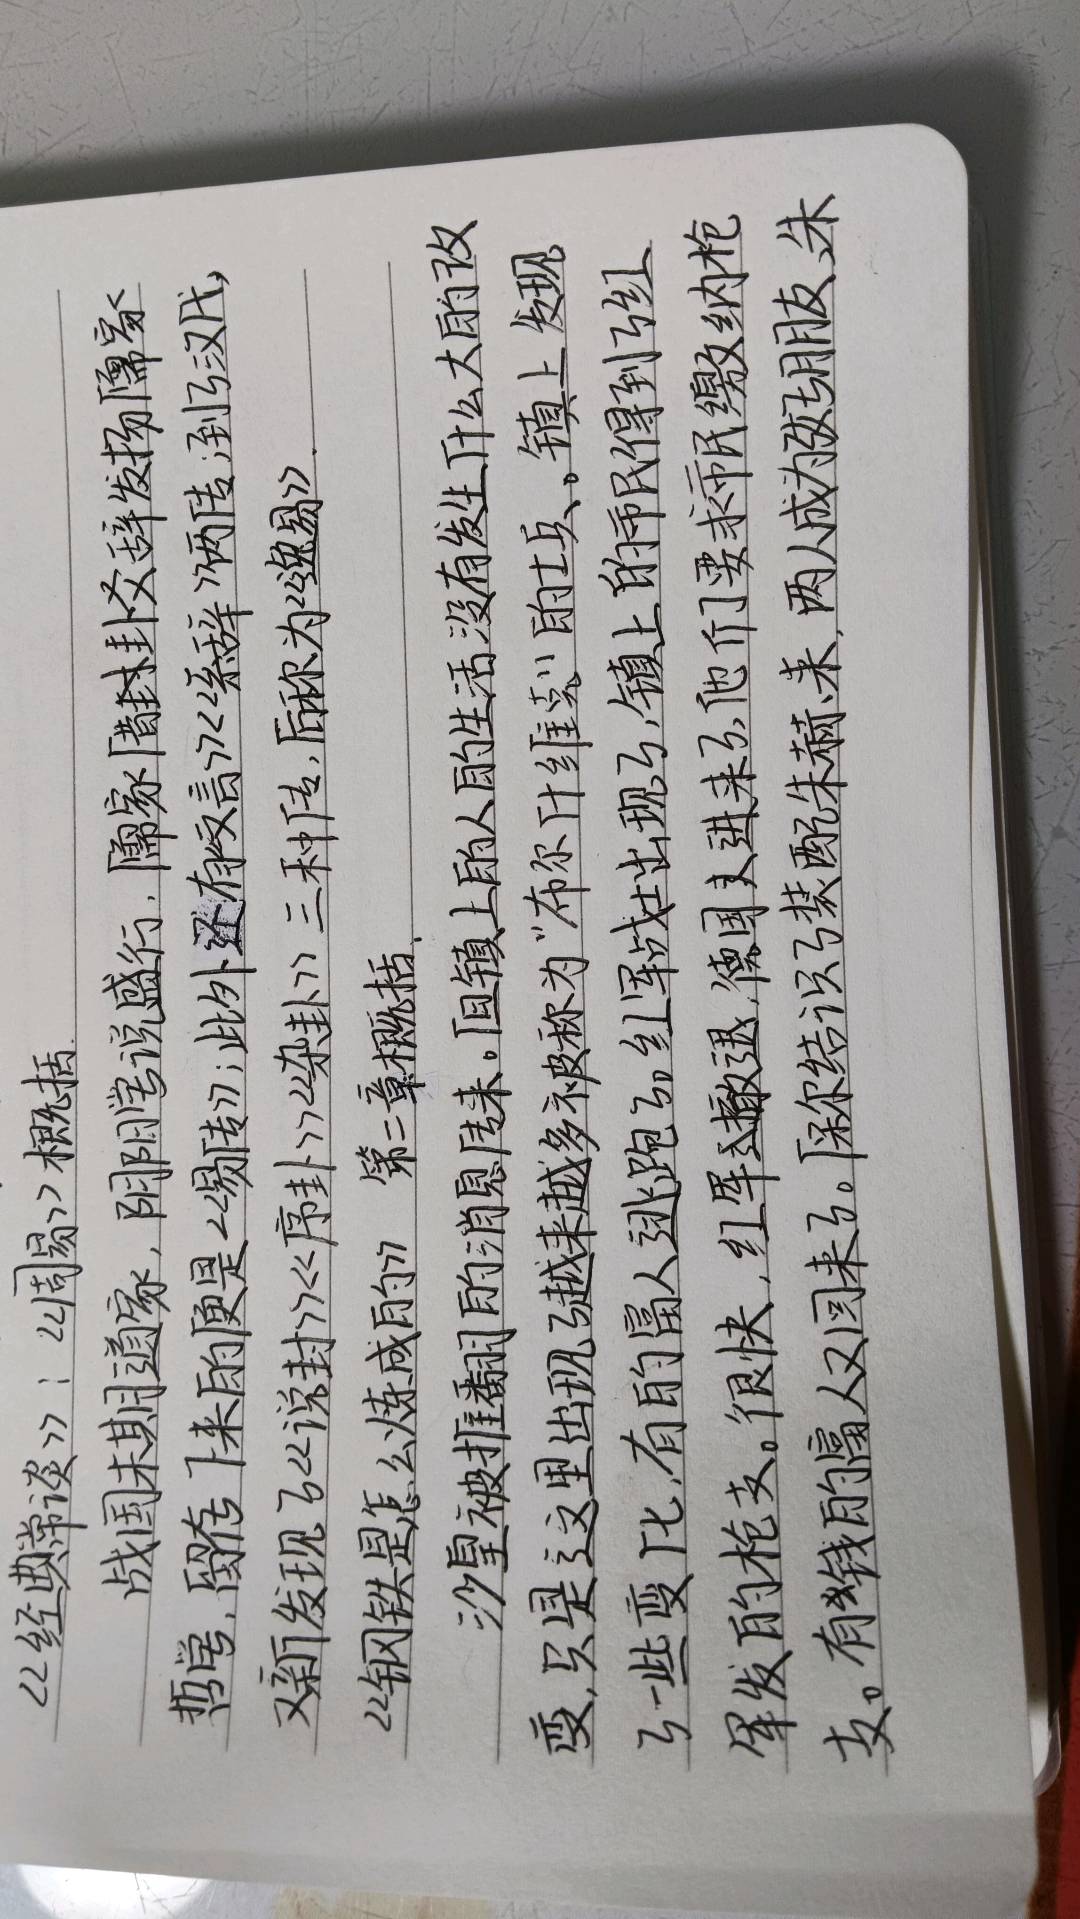 《经典常谈》：《周易》概括.
战国末期道家，阴阳学说盛行，儒家借卦爻辞发扬儒家
哲学，留在下来的便是《易传》；此外还有《文言》《系辞》两传；到了汉代，
又新发现了《说封》《序卦》《杂卦》三种传，后称为《逸易》.
《钢铁是怎么炼成的》 第二章概括.
沙皇被推翻的消息传来。但镇上的人的生活没有发生什么大的改
变，只是这里出现了越来越多被称为“布尔什维克”的士兵。镇上发现
了一些变化，有的富人逃跑了。红军战士出现了，镇上的市民得到了红
军发的枪支。很快，红军又撤退，德国又进来了，他们要求市民缴纳枪
支。有钱的富人又回来了。保尔结识了装配朱赫来，两人成为好朋友，朱